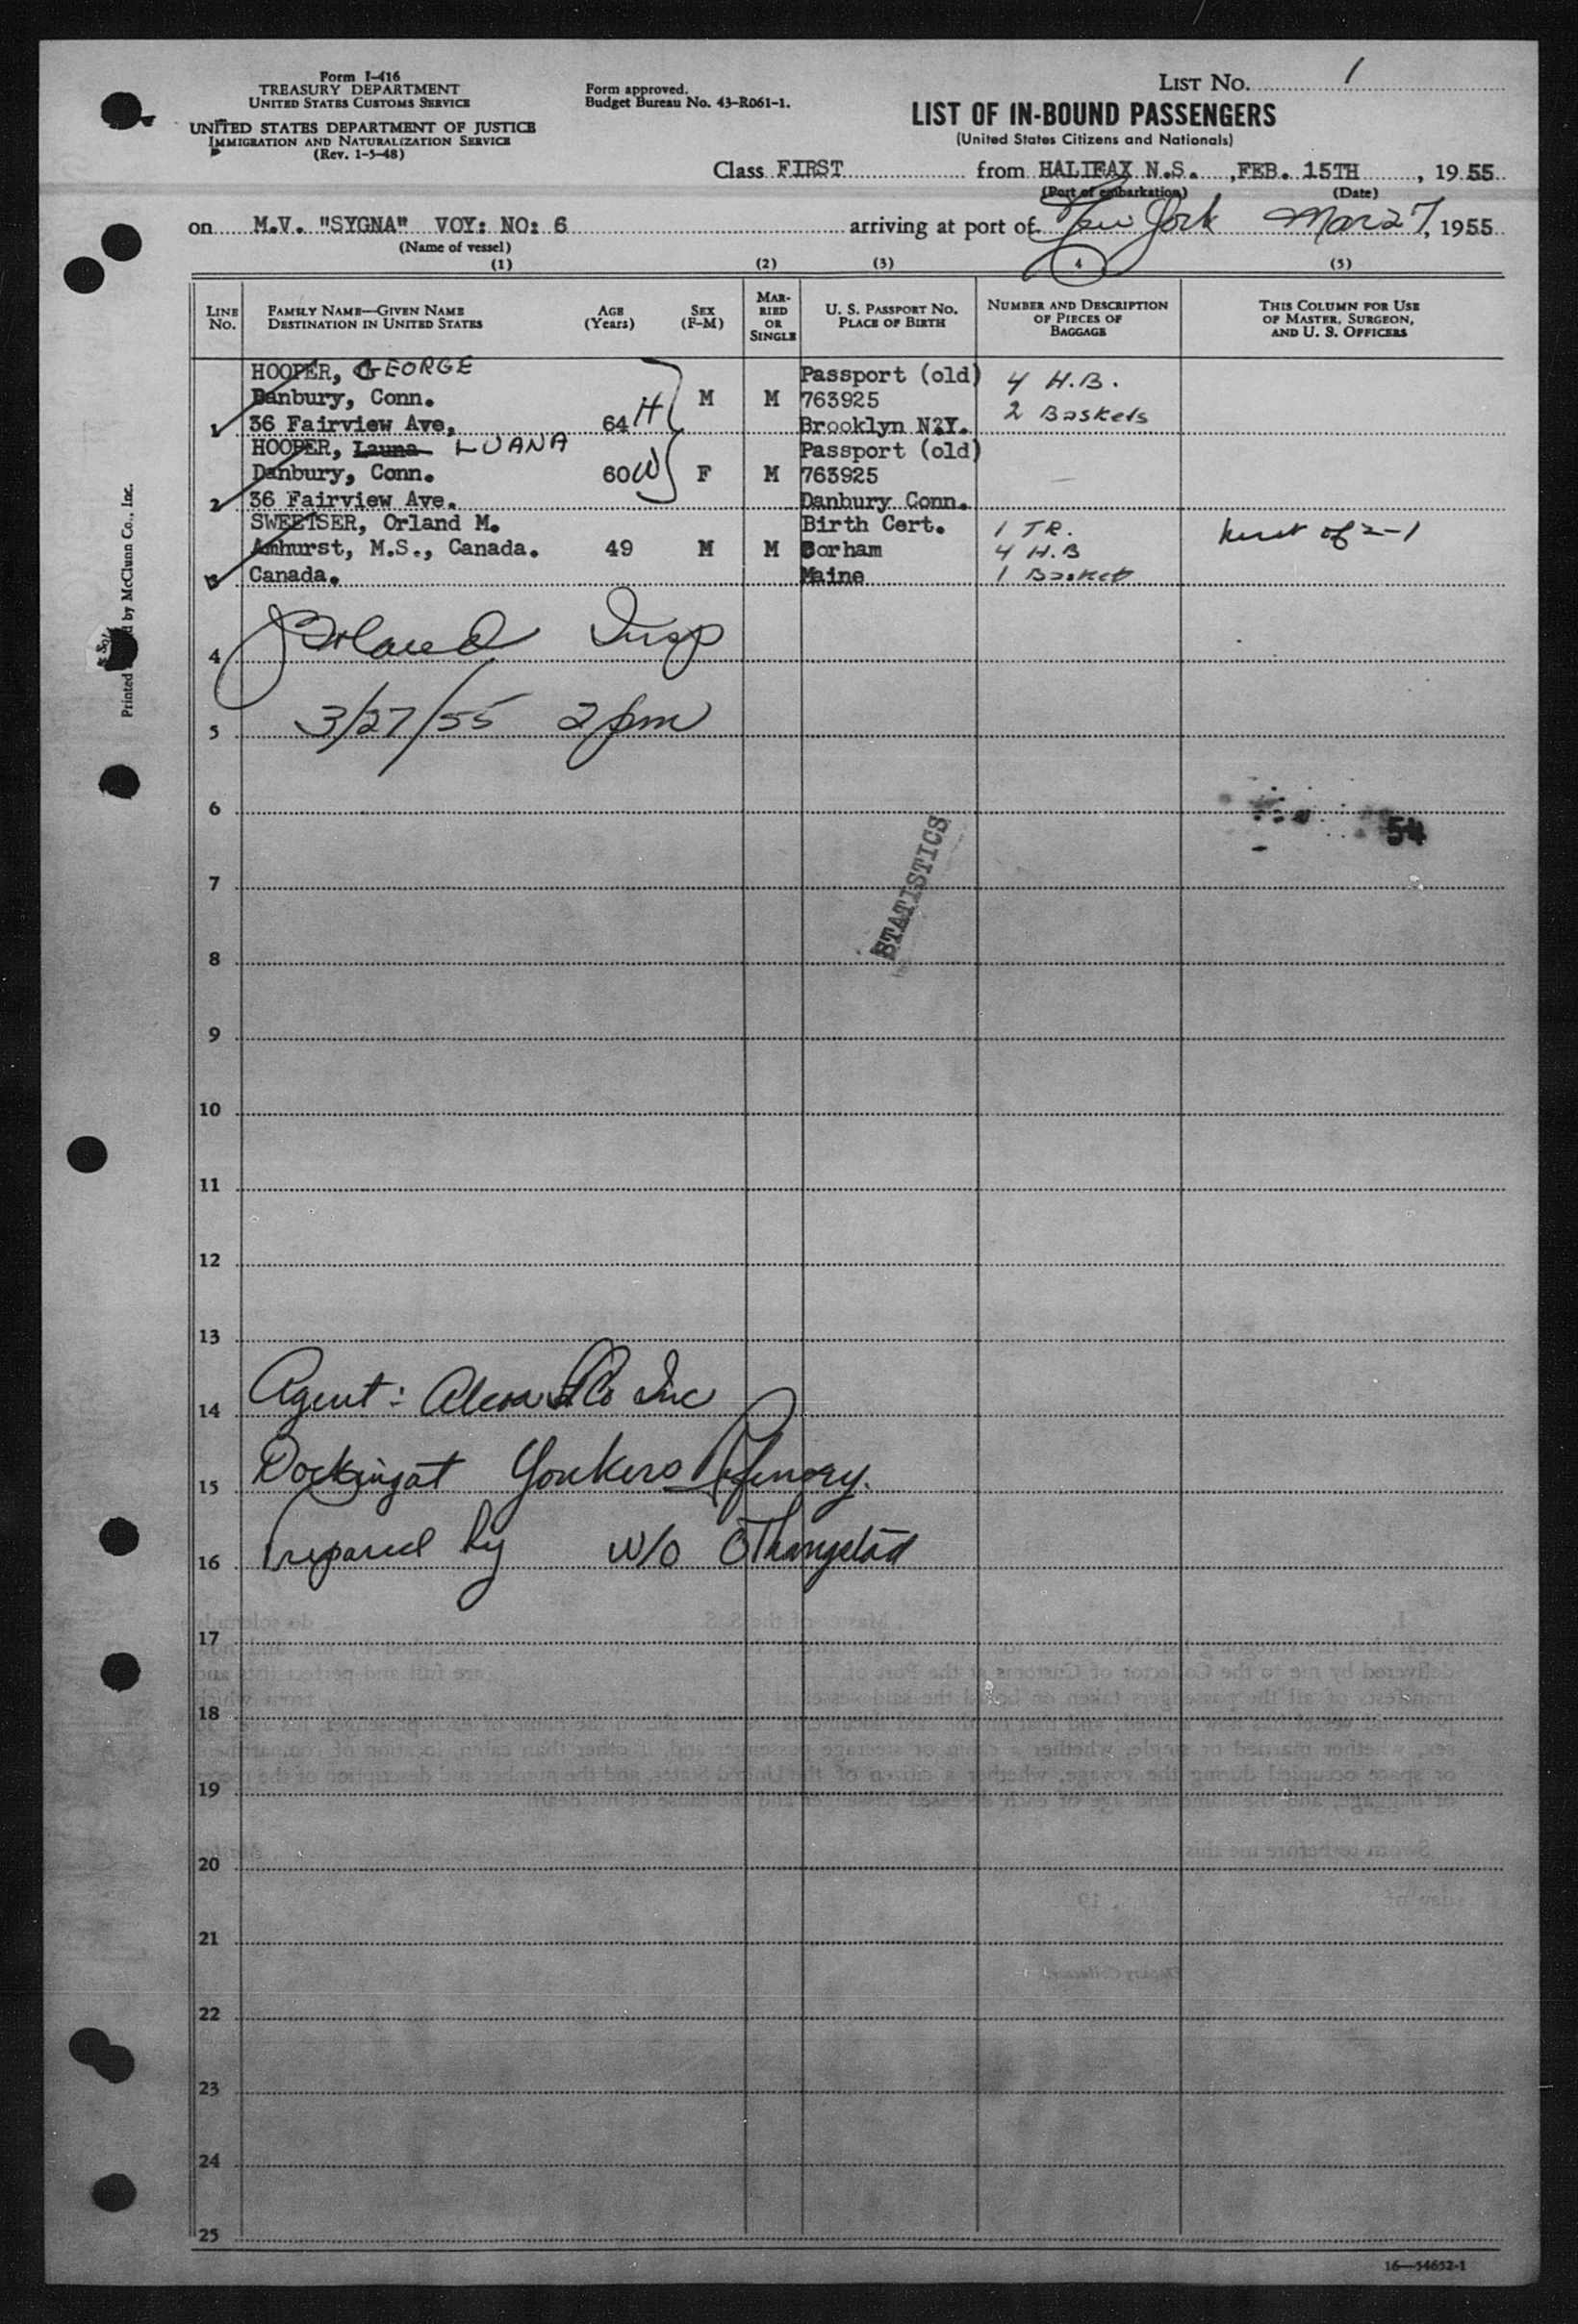 Form I-416
TREASURY DEPARTMENT
UNITED STATES CUSTOMS SERVICE
UNITED STATES DEPARTMENT OF JUSTICE
IMMIGRATION AND NATURALIZATION SERVICE
(Rev. 1-5-48)
Form approved.
Budget Bureau No. 43-R061-1.
LIST No. 1
LIST OF IN-BOUND PASSENGERS
(United States Citizens and Nationals)
Class FIRST from HALIFAX N.S. , FEB. 15TH , 1955
(Port of embarkation) (Date)
on M.V. "SYGNA" VOY: NO: 6 arriving at port of New York Mar 27, 1955
(Name of vessel)
(1) (2) (3) 4 (5)
LINE No. FAMILY NAME—GIVEN NAME DESTINATION IN UNITED STATES AGE (Years) SEX (F-M) MARRIED OR SINGLE U. S. PASSPORT No. PLACE OF BIRTH NUMBER AND DESCRIPTION OF PIECES OF BAGGAGE THIS COLUMN FOR USE OF MASTER, SURGEON, AND U. S. OFFICERS
HOOPER, GEORGE Passport (old) 4 H.B.
Danbury, Conn. M M 763925 2 Baskets
1 36 Fairview Ave, 64 H Brooklyn N?Y.
HOOPER, Launa LUANA Passport (old)
Danbury, Conn. 60 W F M 763925
2 36 Fairview Ave. Danbury Conn.
SWEETSER, Orland M. Birth Cert. 1 TR.
Amhurst, M.S., Canada. 49 M M Gorham 4 H.B of 2-1
3 Canada. Maine 1 Basket
4 Insp
5 3/27/55 2 pm
6
54
7
STATISTICS
8
9
10
11
12
13
14 Agent: Alcoa Inc
15 Docking at Yonkers Refinery.
16 Prepared by
17
18
19
20
21
22
23
24
25
16—54652-1
Printed by McClunn Co., Inc.